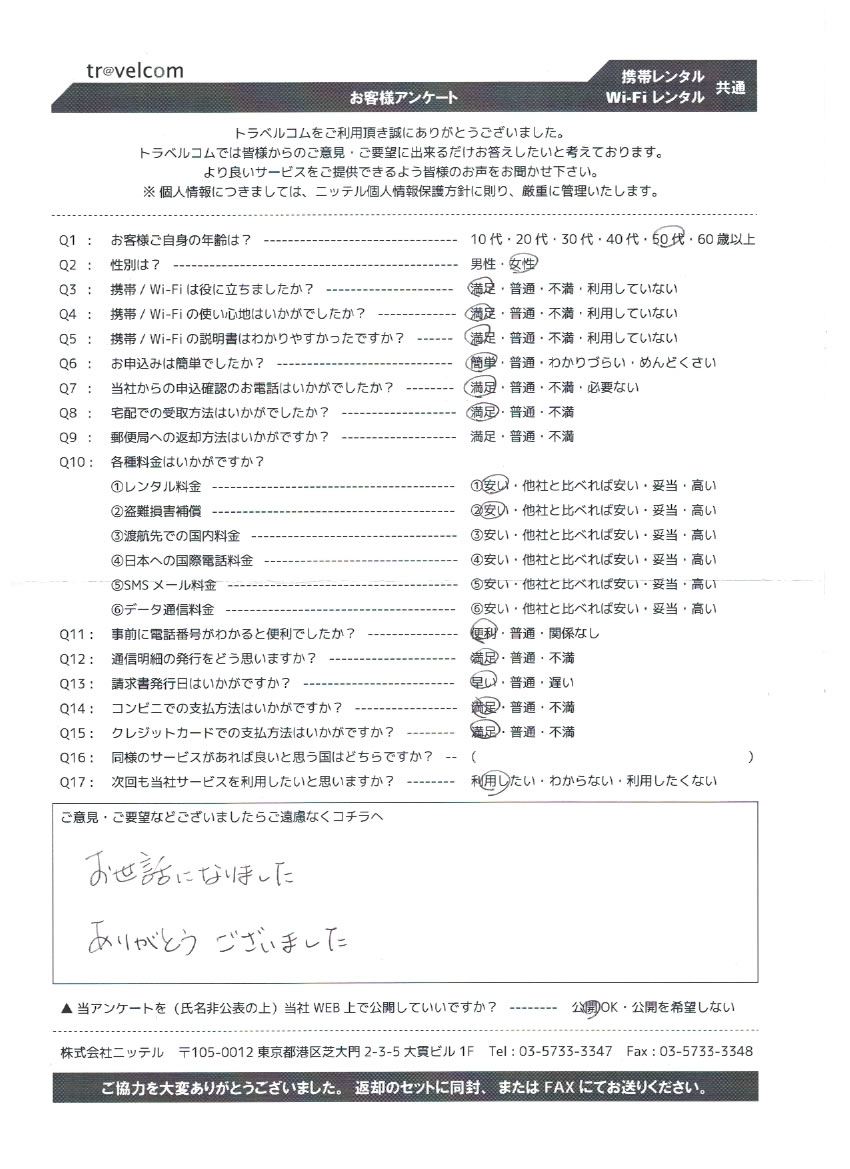 tr@velcom
お客様アンケート
携帯レンタル
Wi-Fi レンタル
共通
トラベルコムをご利用頂き誠にありがとうございました。
トラベルコムでは皆様からのご意見・ご要望に出来るだけお答えしたいと考えております。
より良いサービスをご提供できるよう皆様のお声をお聞かせ下さい。
※ 個人情報につきましては、ニッテル個人情報保護方針に則り、厳重に管理いたします。
Q1 : お客様ご自身の年齢は? ---------------------------- 10 代・20 代・30 代・40 代・50 代・60 歳以上
Q2 : 性別は? ---------------------------------------- 男性・女性
Q3 : 携帯 / Wi-Fi は役に立ちましたか? ------------------- 満足・普通・不満・利用していない
Q4 : 携帯 / Wi-Fi の使い心地はいかがでしたか? ------------ 満足・普通・不満・利用していない
Q5 : 携帯 / Wi-Fi の説明書はわかりやすかったですか? ------ 満足・普通・不満・利用していない
Q6 : お申込みは簡単でしたか? -------------------------- 簡単・普通・わかりづらい・めんどくさい
Q7 : 当社からの申込確認のお電話はいかがでしたか? -------- 満足・普通・不満・必要ない
Q8 : 宅配での受取方法はいかがでしたか? ----------------- 満足・普通・不満
Q9 : 郵便局への返却方法はいかがですか? ----------------- 満足・普通・不満
Q10 : 各種料金はいかがですか?
①レンタル料金 ----------------------------------- ①安い・他社と比べれば安い・妥当・高い
②盗難損害補償 ----------------------------------- ②安い・他社と比べれば安い・妥当・高い
③渡航先での国内料金 ------------------------------ ③安い・他社と比べれば安い・妥当・高い
④日本への国際電話料金 ---------------------------- ④安い・他社と比べれば安い・妥当・高い
⑤SMS メール料金 --------------------------------- ⑤安い・他社と比べれば安い・妥当・高い
⑥データ通信料金 --------------------------------- ⑥安い・他社と比べれば安い・妥当・高い
Q11 : 事前に電話番号がわかると便利でしたか? ------------- 便利・普通・関係なし
Q12 : 通信明細の発行をどう思いますか? ------------------ 満足・普通・不満
Q13 : 請求書発行日はいかがですか? ---------------------- 早い・普通・遅い
Q14 : コンビニでの支払方法はいかがですか? --------------- 満足・普通・不満
Q15 : クレジットカードでの支払方法はいかがですか? ------- 満足・普通・不満
Q16 : 同様のサービスがあれば良いと思う国はどちらですか? -- ( )
Q17 : 次回も当社サービスを利用したいと思いますか? ------- 利用したい・わからない・利用したくない
ご意見・ご要望などございましたらご遠慮なくコチラへ
お世話になりました
ありがとうございました
▲ 当アンケートを(氏名非公表の上)当社 WEB 上で公開していいですか? -------- 公開OK・公開を希望しない
株式会社ニッテル 〒105-0012 東京都港区芝大門 2-3-5 大貫ビル 1F Tel : 03-5733-3347 Fax : 03-5733-3348
ご協力を大変ありがとうございました。返却のセットに同封、または FAX にてお送りください。